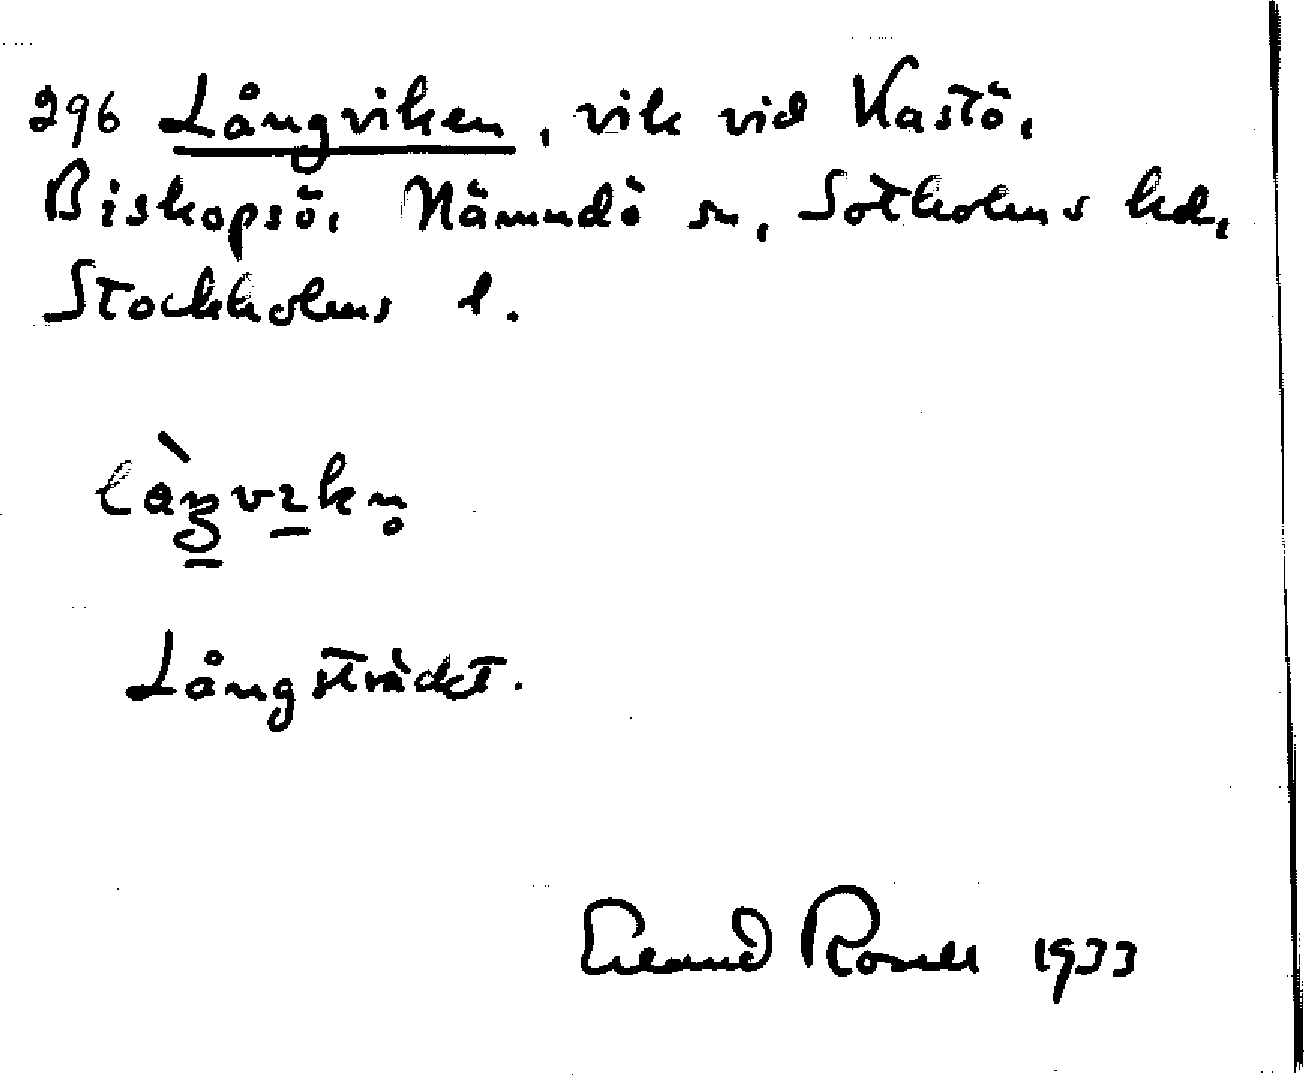 296 Långviken, vik vid Kastö,
Biskopsö, Nämndö sn, Sotholms hd,
Stockholms l.
Långsträckt.
Erland Rosell 1933